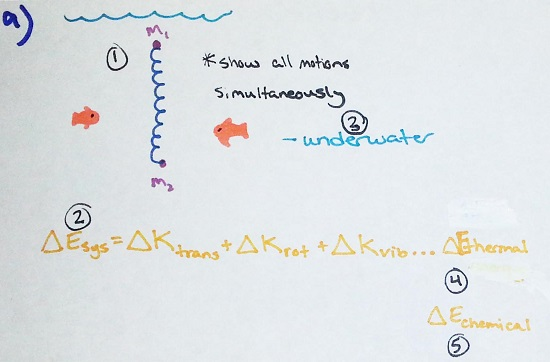 a)
M₁
①
*show all motions
simultaneously
③
- underwater
M₂
②
ΔEsys = ΔKtrans + ΔKrot + ΔKvib... ΔEthermal
④
ΔEchemical
⑤